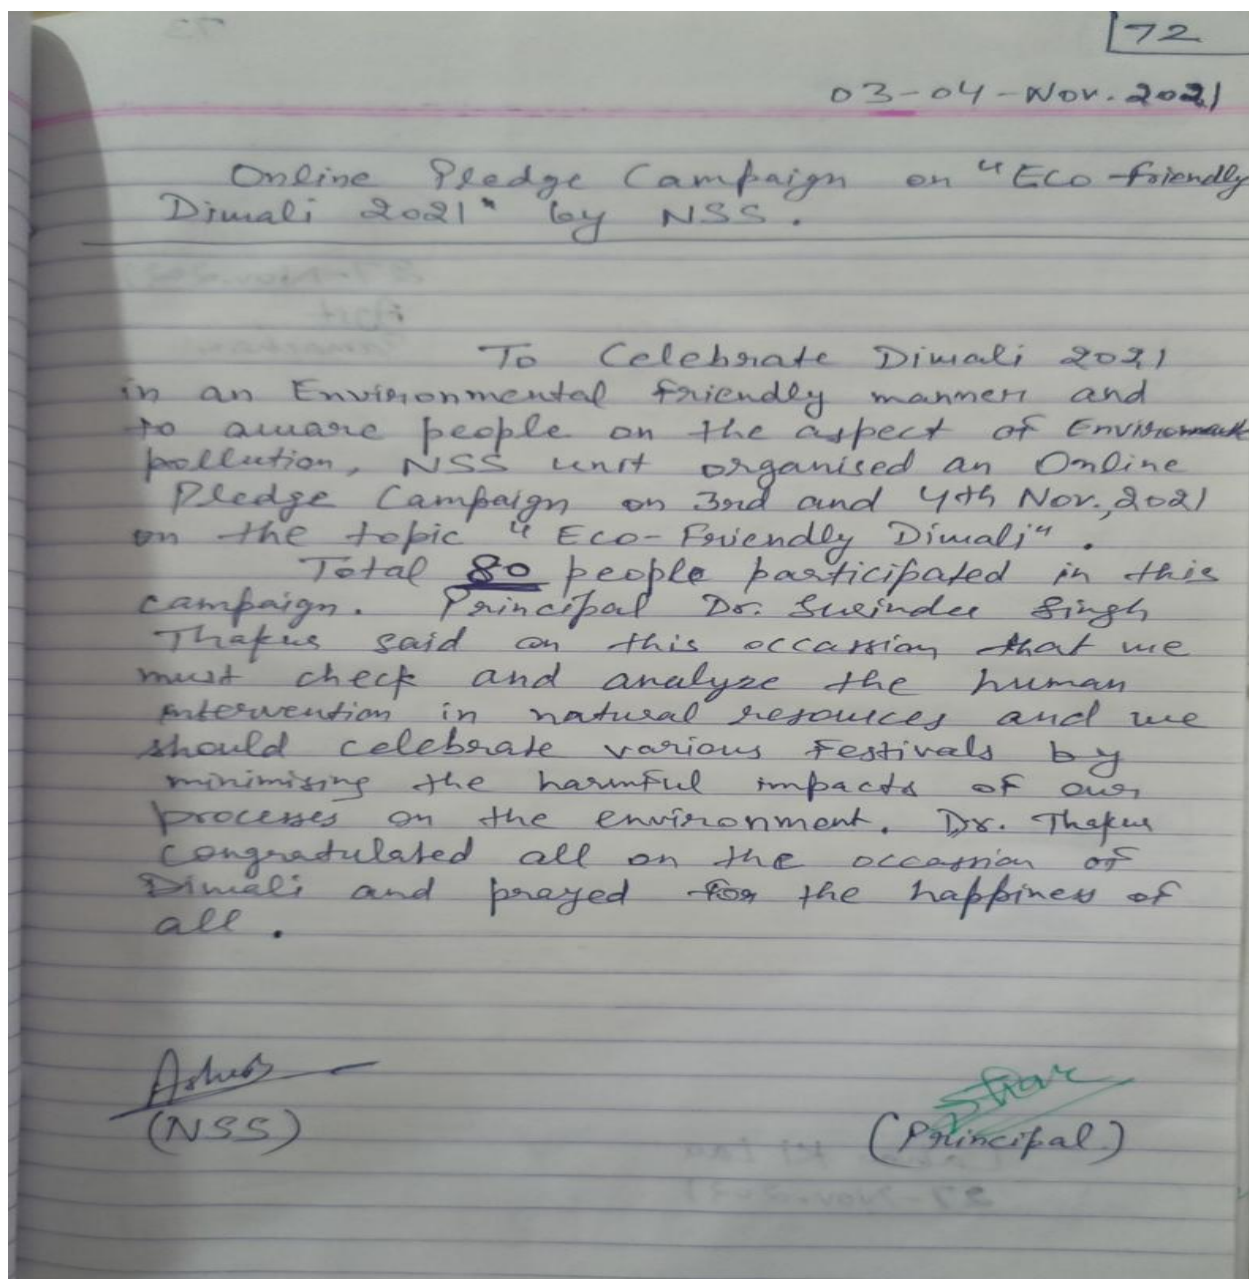 72
03-04-Nov. 2021
Online Pledge Campaign on "Eco-friendly
Diwali 2021" by NSS.
To Celebrate Diwali 2021
in an Environmental friendly manner and
to aware people on the aspect of Environment
pollution, NSS unit organised an Online
Pledge Campaign on 3rd and 4th Nov., 2021
on the topic "Eco-Friendly Diwali".
Total 80 people participated in this
campaign. Principal Dr. Surinder Singh
Thakur said on this occassion that we
must check and analyze the human
intervention in natural resources and we
should celebrate various Festivals by
minimising the harmful impacts of our
processes on the environment. Dr. Thakur
Congratulated all on the occassion of
Diwali and prayed for the happiness of
all.
(NSS)
(Principal.)